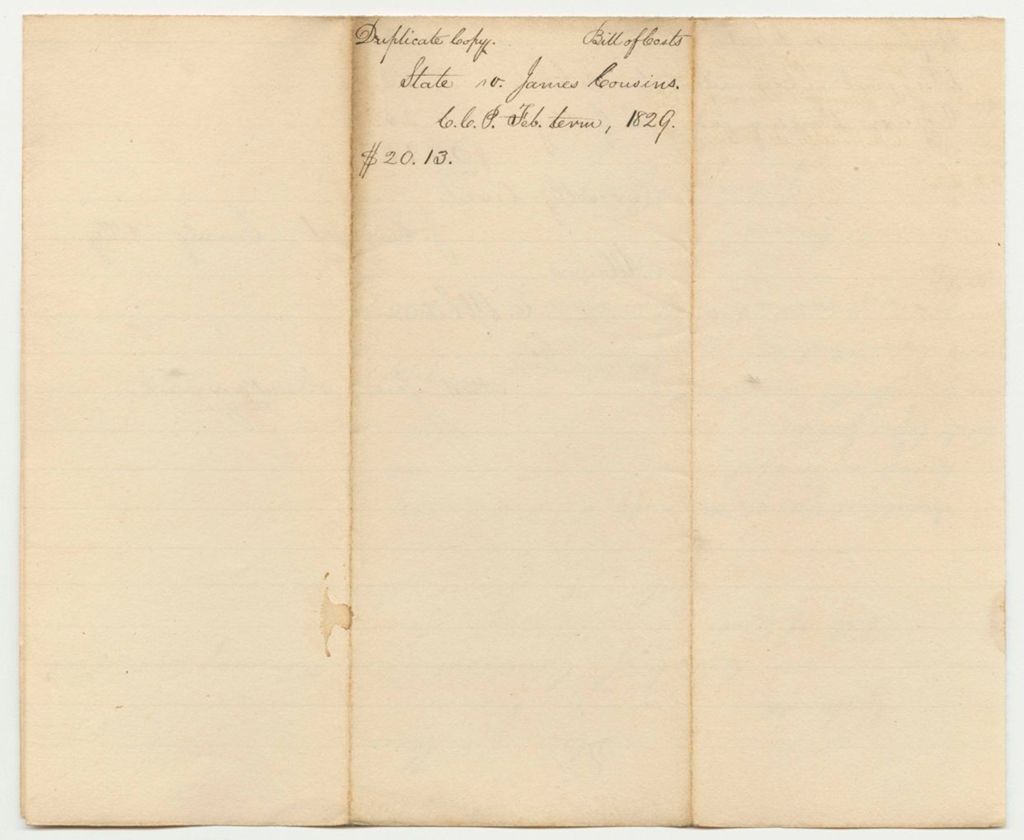 Duplicate Copy. Bill of Costs
State vs. James Cousins.
C.C.P. Feb. term, 1829.
$20.13.